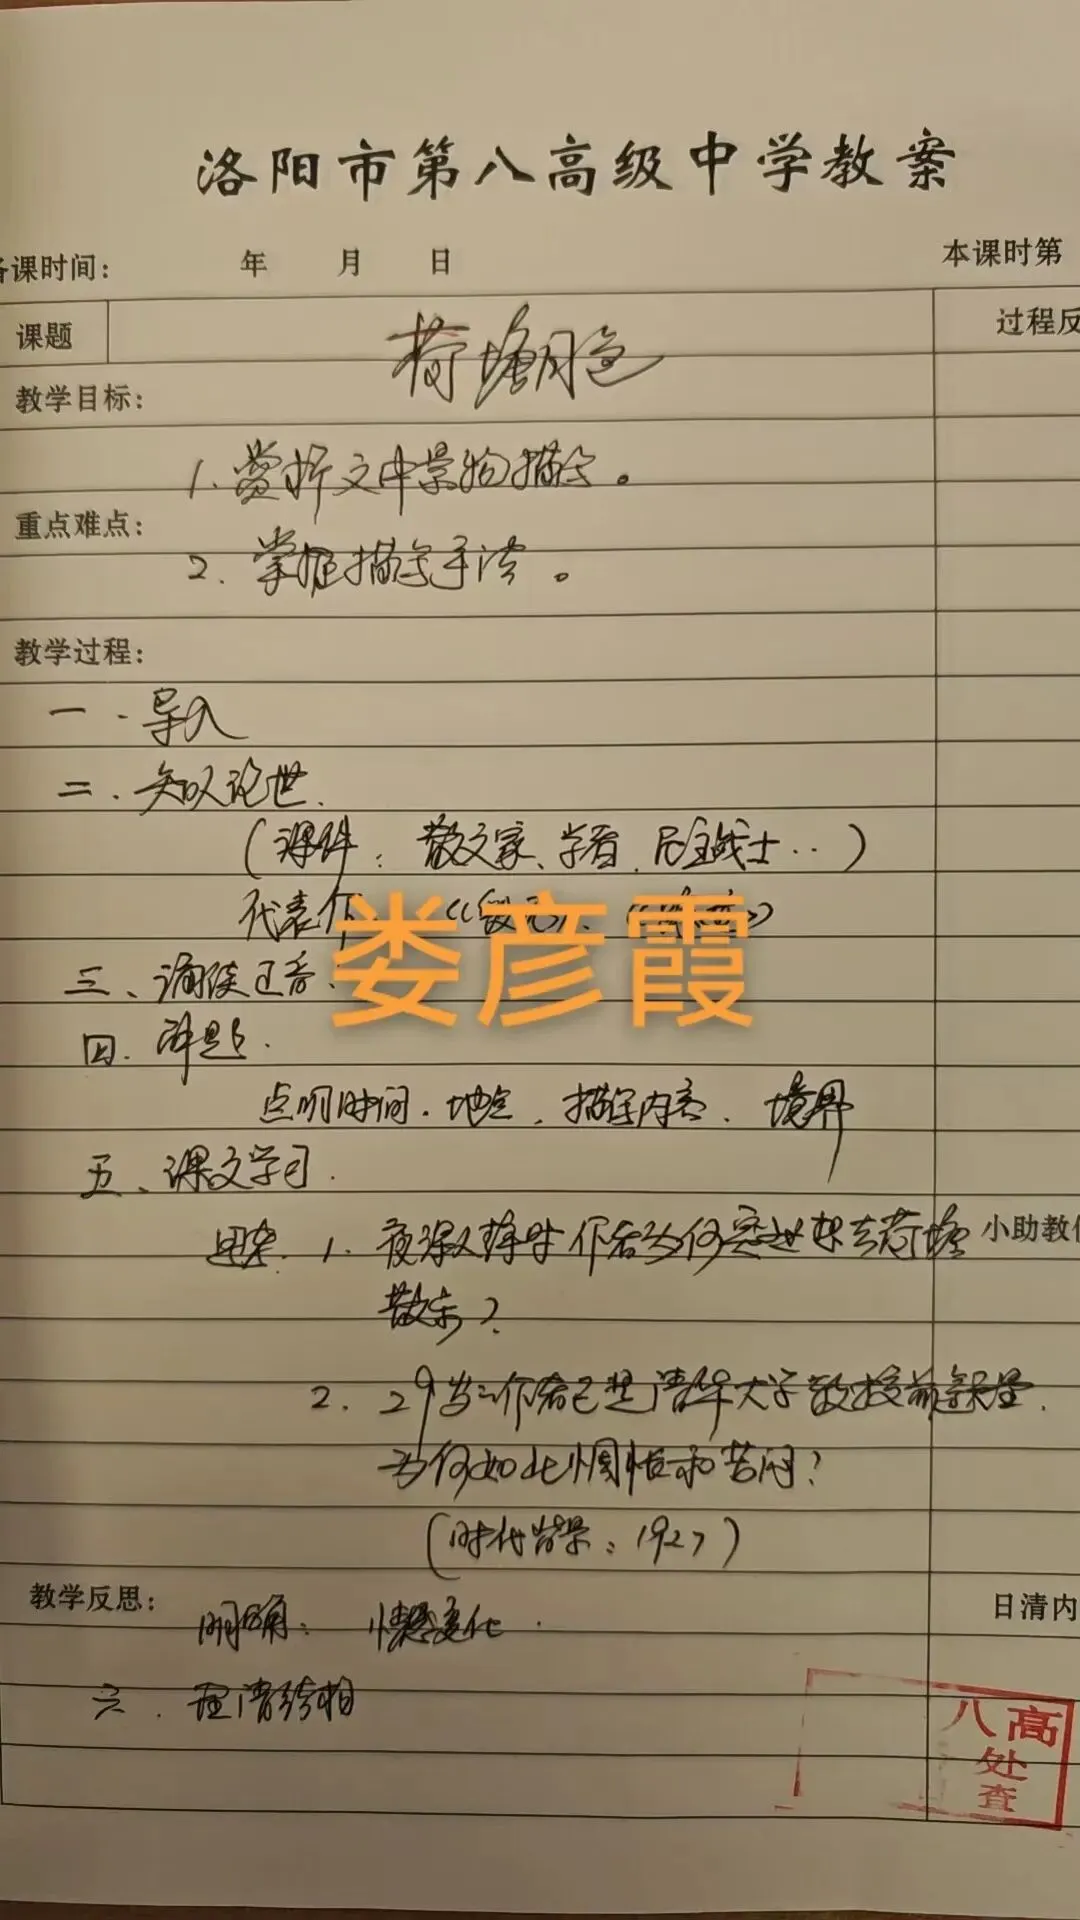 洛阳市第八高级中学教案
备课时间： 年 月 日 本课时第
课题 荷塘月色 过程反
教学目标：
1.赏析文中景物描写。
重点难点：
2.掌握描写手法。
教学过程：
一.导入
二.知人论世.
（课件：散文家、学者、民主战士..）
代表作
娄彦霞
三、诵读正音.
四.解题.
点明时间.地点,描写内容.境界
五、课文学习.
思索.1.夜深人静时作者为何突然想去荷塘 小助教
散步？
2.29岁的作者已是清华大学教授
为何如此惆怅和苦闷？
（时代背景：1927）
教学反思： 日清内
明确：情感变化.
六.理清结构
八高
处
查